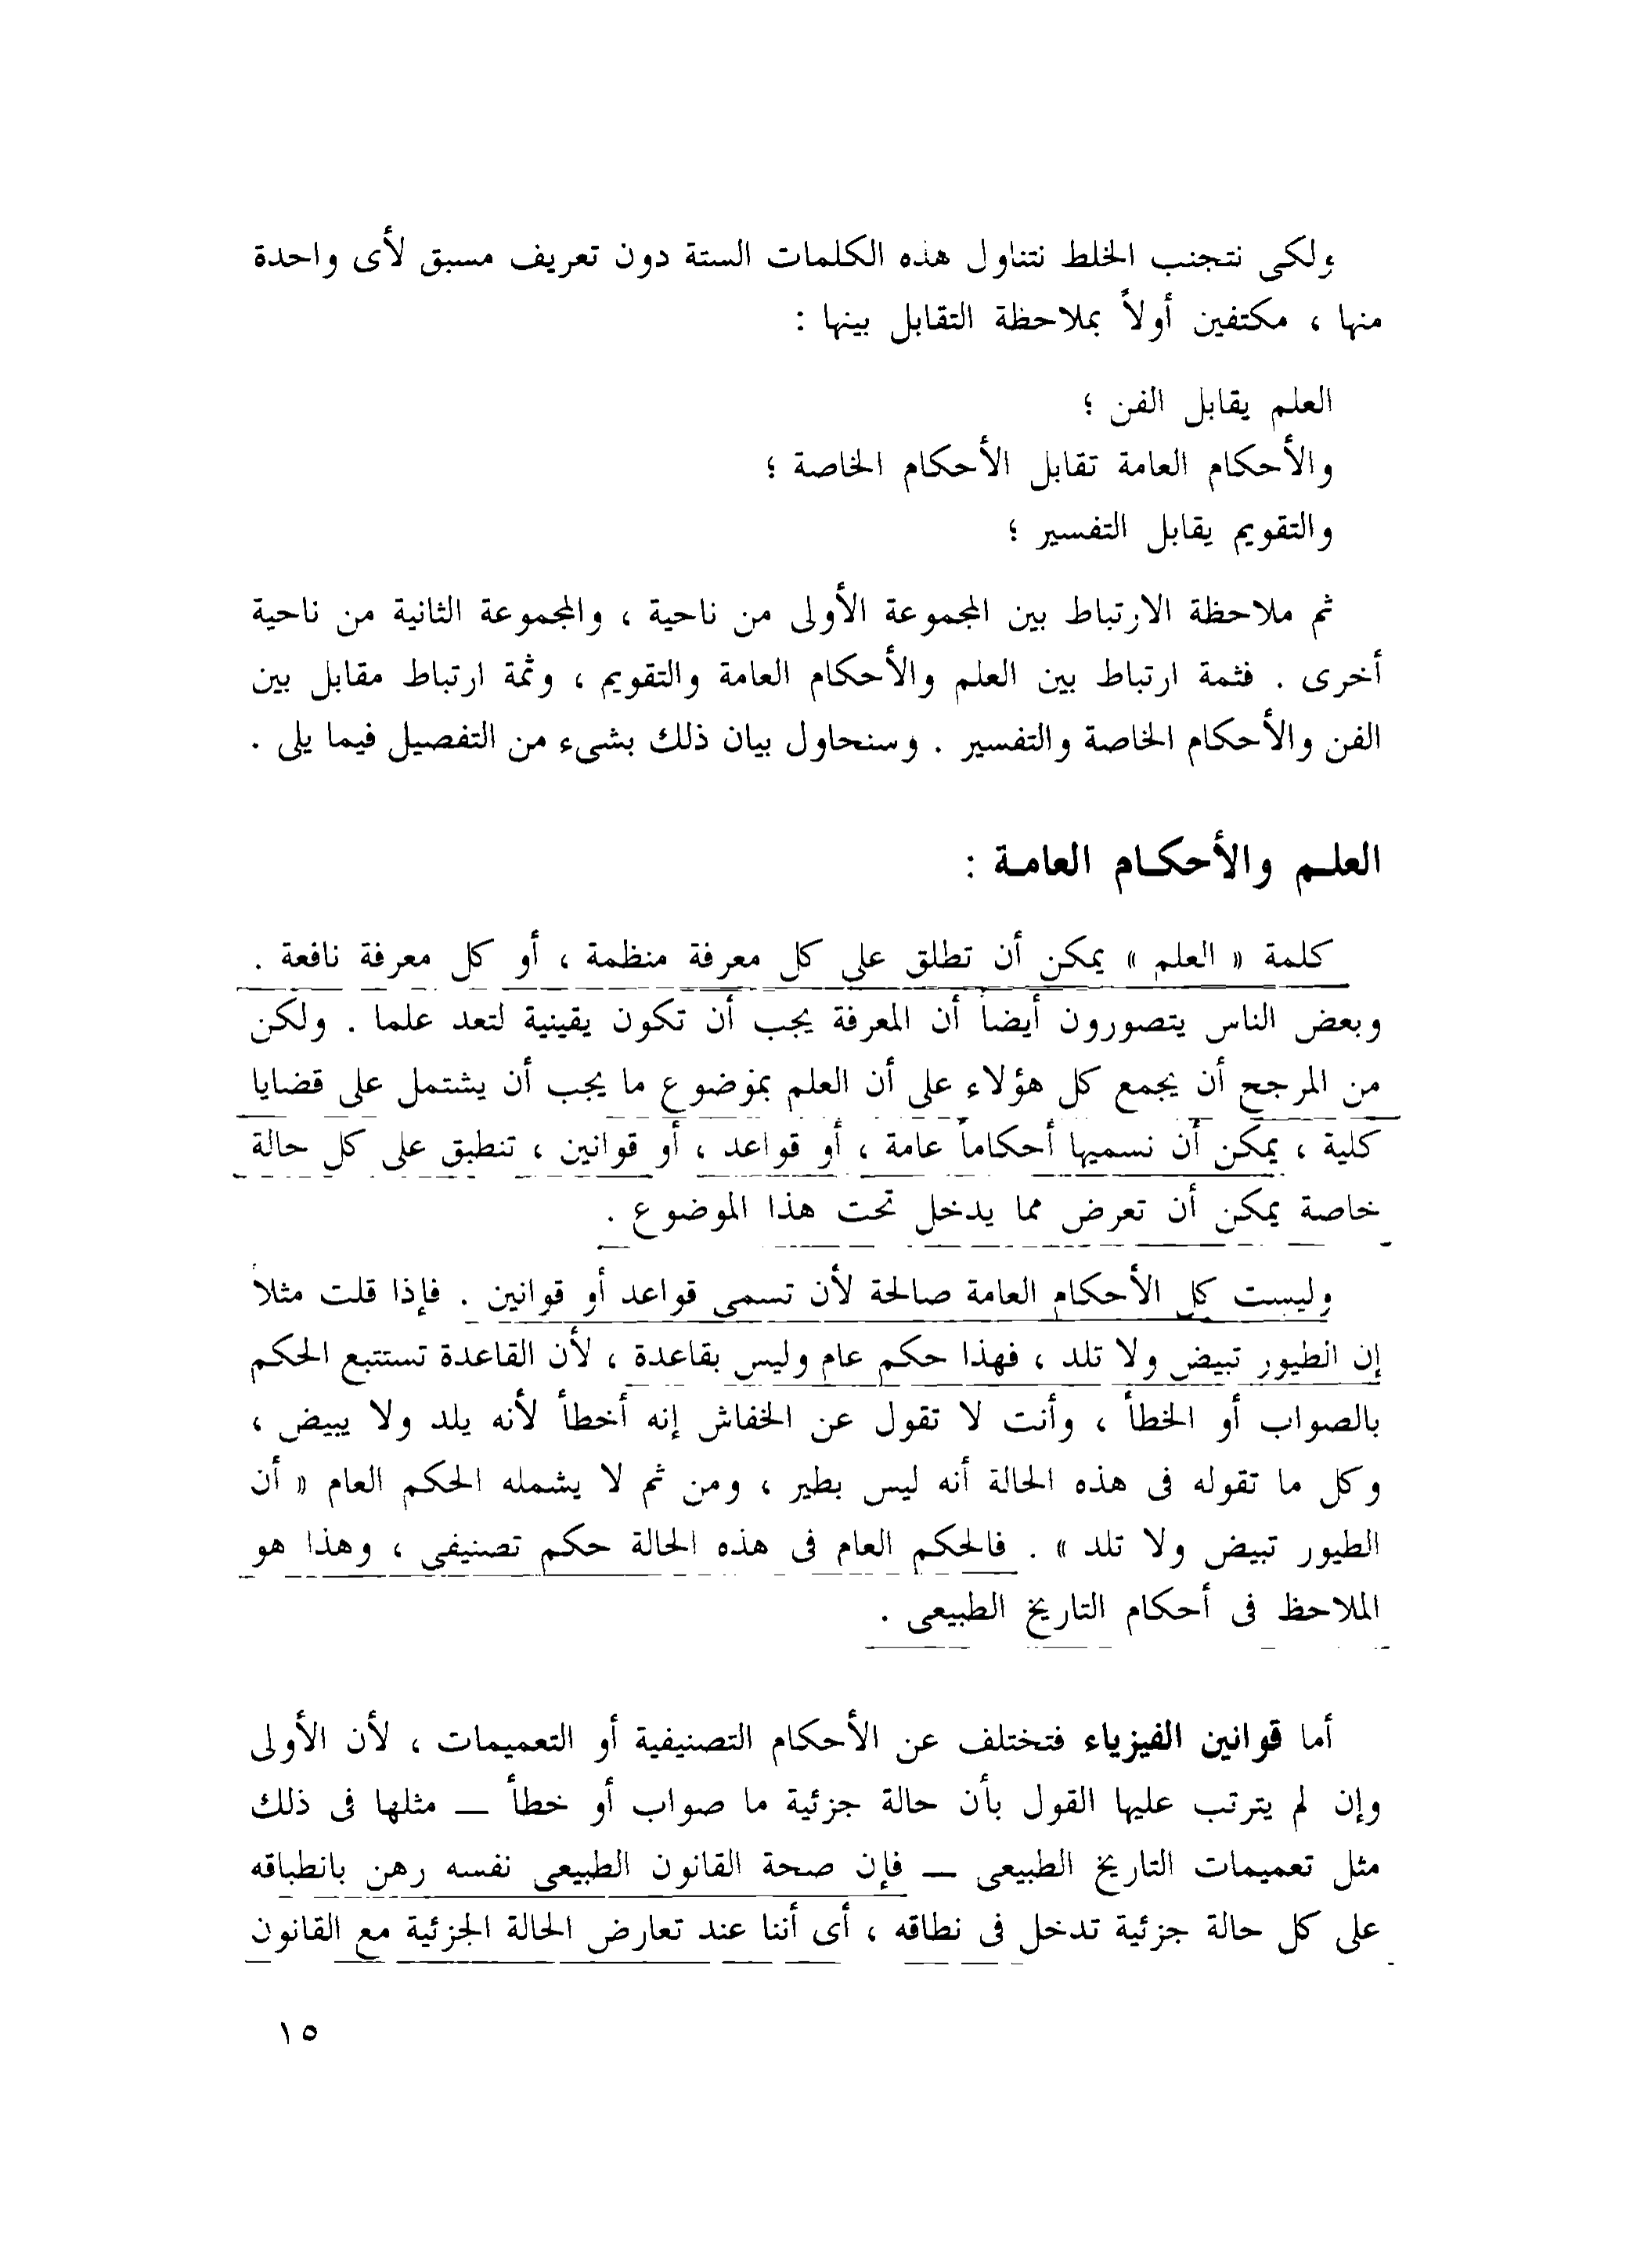 ولكى نتجنب الخلط نتناول هذه الكلمات الستة دون تعريف مسبق لأى واحدة
منها ، مكتفين أولاً بملاحظة التقابل بينها :
العلم يقابل الفن ؛
والأحكام العامة تقابل الأحكام الخاصة ؛
والتقويم يقابل التفسير ؛
ثم ملاحظة الارتباط بين المجموعة الأولى من ناحية ، والمجموعة الثانية من ناحية
أخرى . فثمة ارتباط بين العلم والأحكام العامة والتقويم ، وثمة ارتباط مقابل بين
الفن والأحكام الخاصة والتفسير . وسنحاول بيان ذلك بشىء من التفصيل فيما يلى .
العلـم والأحكـام العامـة :
كلمة « العلم » يمكن أن تطلق على كل معرفة منظمة ، أو كل معرفة نافعة .
وبعض الناس يتصورون أيضاً أن المعرفة يجب أن تكون يقينية لتعد علما . ولكن
من المرجح أن يجمع كل هؤلاء على أن العلم بموضوع ما يجب أن يشتمل على قضايا
كلية ، يمكن أن نسميها أحكاماً عامة ، أو قواعد ، أو قوانين ، تنطبق على كل حالة
خاصة يمكن أن تعرض مما يدخل تحت هذا الموضوع .
وليست كل الأحكام العامة صالحة لأن تسمى قواعد أو قوانين . فإذا قلت مثلاً
إن الطيور تبيض ولا تلد ، فهذا حكم عام وليس بقاعدة ، لأن القاعدة تستتبع الحكم
بالصواب أو الخطأ ، وأنت لا تقول عن الخفاش إنه أخطأ لأنه يلد ولا يبيض ،
وكل ما تقوله فى هذه الحالة أنه ليس بطير ، ومن ثم لا يشمله الحكم العام « أن
الطيور تبيض ولا تلد » . فالحكم العام فى هذه الحالة حكم تصنيفى ، وهذا هو
الملاحظ فى أحكام التاريخ الطبيعى .
أما قوانين الفيزياء فتختلف عن الأحكام التصنيفية أو التعميمات ، لأن الأولى
وإن لم يترتب عليها القول بأن حالة جزئية ما صواب أو خطأ — مثلها فى ذلك
مثل تعميمات التاريخ الطبيعى — فإن صحة القانون الطبيعى نفسه رهن بانطباقه
على كل حالة جزئية تدخل فى نطاقه ، أى أننا عند تعارض الحالة الجزئية مع القانون
١٥